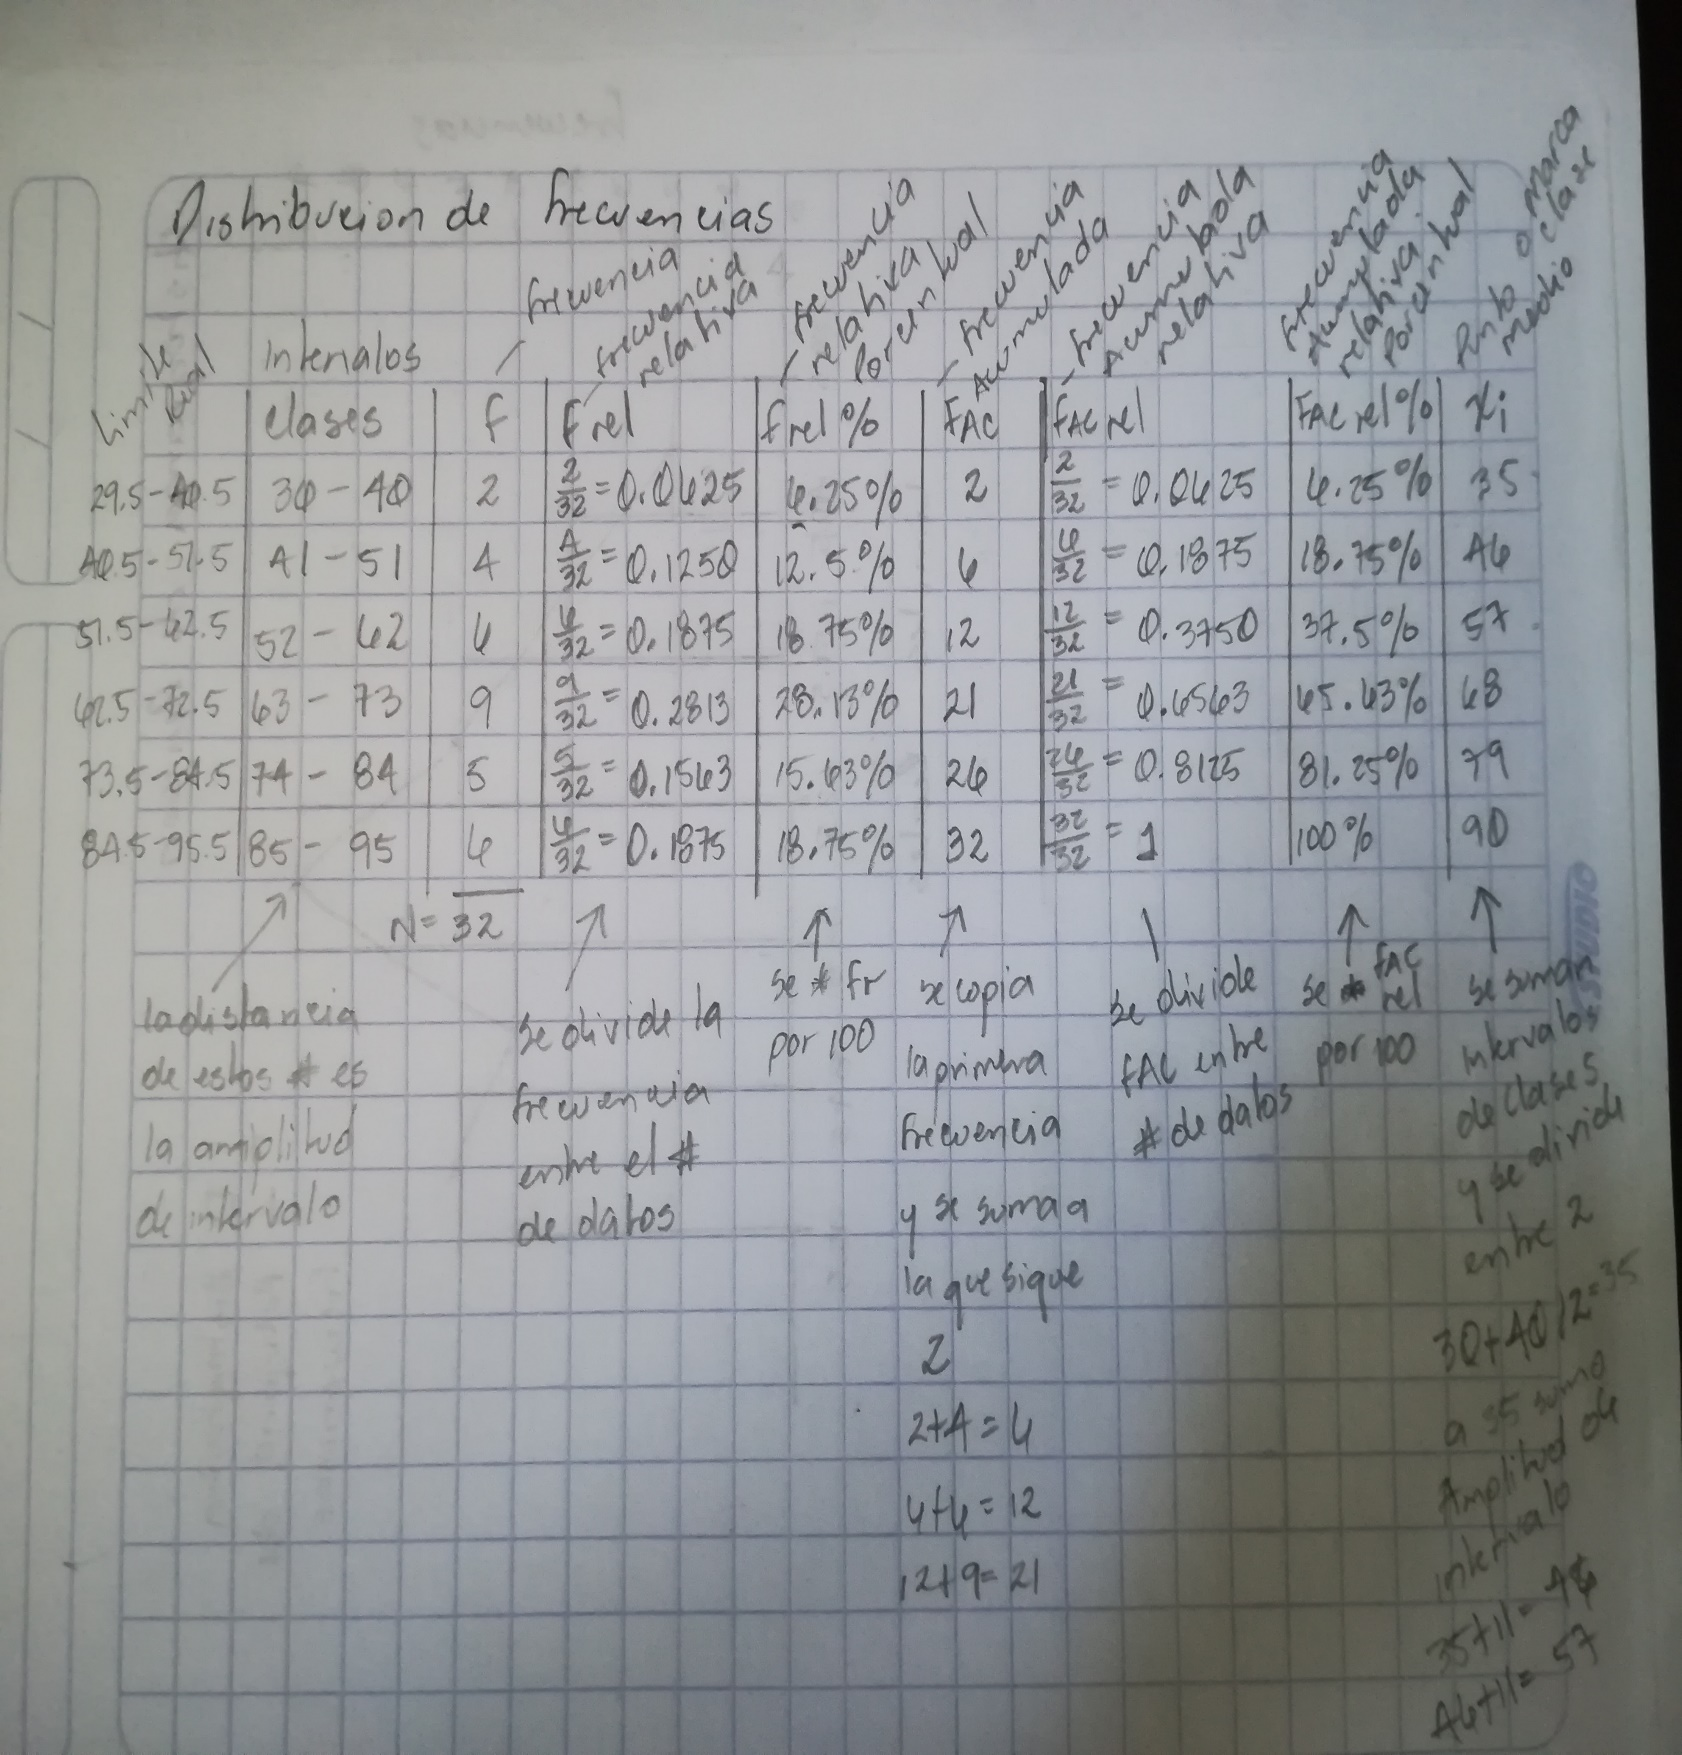 Distribucion de frecuencias
Limite Real
Intervalos
clases
frecuencia
F
frecuencia relativa
F rel
frecuencia relativa Porcentual
f rel %
frecuencia Acumulada
FAC
frecuencia Acumulada relativa
FAC rel
frecuencia Acumulada relativa Porcentual
FAC rel %
Punto medio o Marca clase
Xi
29.5-40.5 30-40 2 2/32=0.0625 6.25% 2 2/32=0.0625 6.25% 35
40.5-51.5 41-51 4 4/32=0.1250 12.5% 6 6/32=0.1875 18.75% 46
51.5-62.5 52-62 6 6/32=0.1875 18.75% 12 12/32=0.3750 37.5% 57
62.5-72.5 63-73 9 9/32=0.2813 28.13% 21 21/32=0.6563 65.63% 68
73.5-84.5 74-84 5 5/32=0.1563 15.63% 26 26/32=0.8125 81.25% 79
84.5-95.5 85-95 6 6/32=0.1875 18.75% 32 32/32=1 100% 90
N=32
la distancia
de estos # es
la amplitud
de intervalo
se divide la
frecuencia
entre el #
de datos
se * fr
por 100
se copia
la primera
frecuencia
y se suma a
la que sigue
2
2+4=6
6+6=12
12+9=21
se divide
FAC entre
# de datos
se * FAC rel
por 100
se suman
intervalos
de clases
y se divide
entre 2
30+40/2=35
a 35 sumo
Amplitud de
intervalo
35+11=46
46+11=57
STUDIO